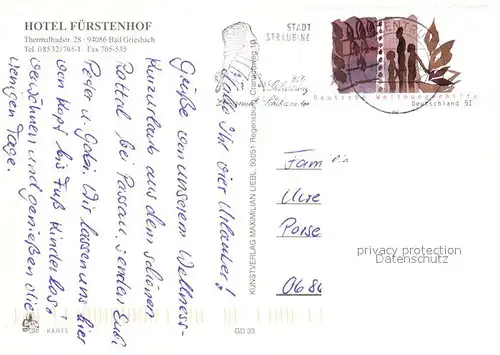 HOTEL FÜRSTENHOF
Thermalbadstr. 28 · 94086 Bad Griesbach
Tel. 08532/705-1 Fax 705-535
Hallo Ihr vier Urlauber!
Grüße von unserem Wellness-
kurzurlaub aus dem schönen
Rottal bei Passau, senden Euch
Peter u. Gabi. Wir lassen uns hier
von Kopf bis Fuß kinderlos
verwöhnen und genießen die
wenigen Tage.
KARTE
GD 33
KUNSTVERLAG MAXIMILIAN LIEBL 93051 Regensburg
STADT
STRAUBING
Deutsche Welthungerhilfe
Deutschland 51
Fam
Uwe
Porse
0686
privacy protection
Datenschutz